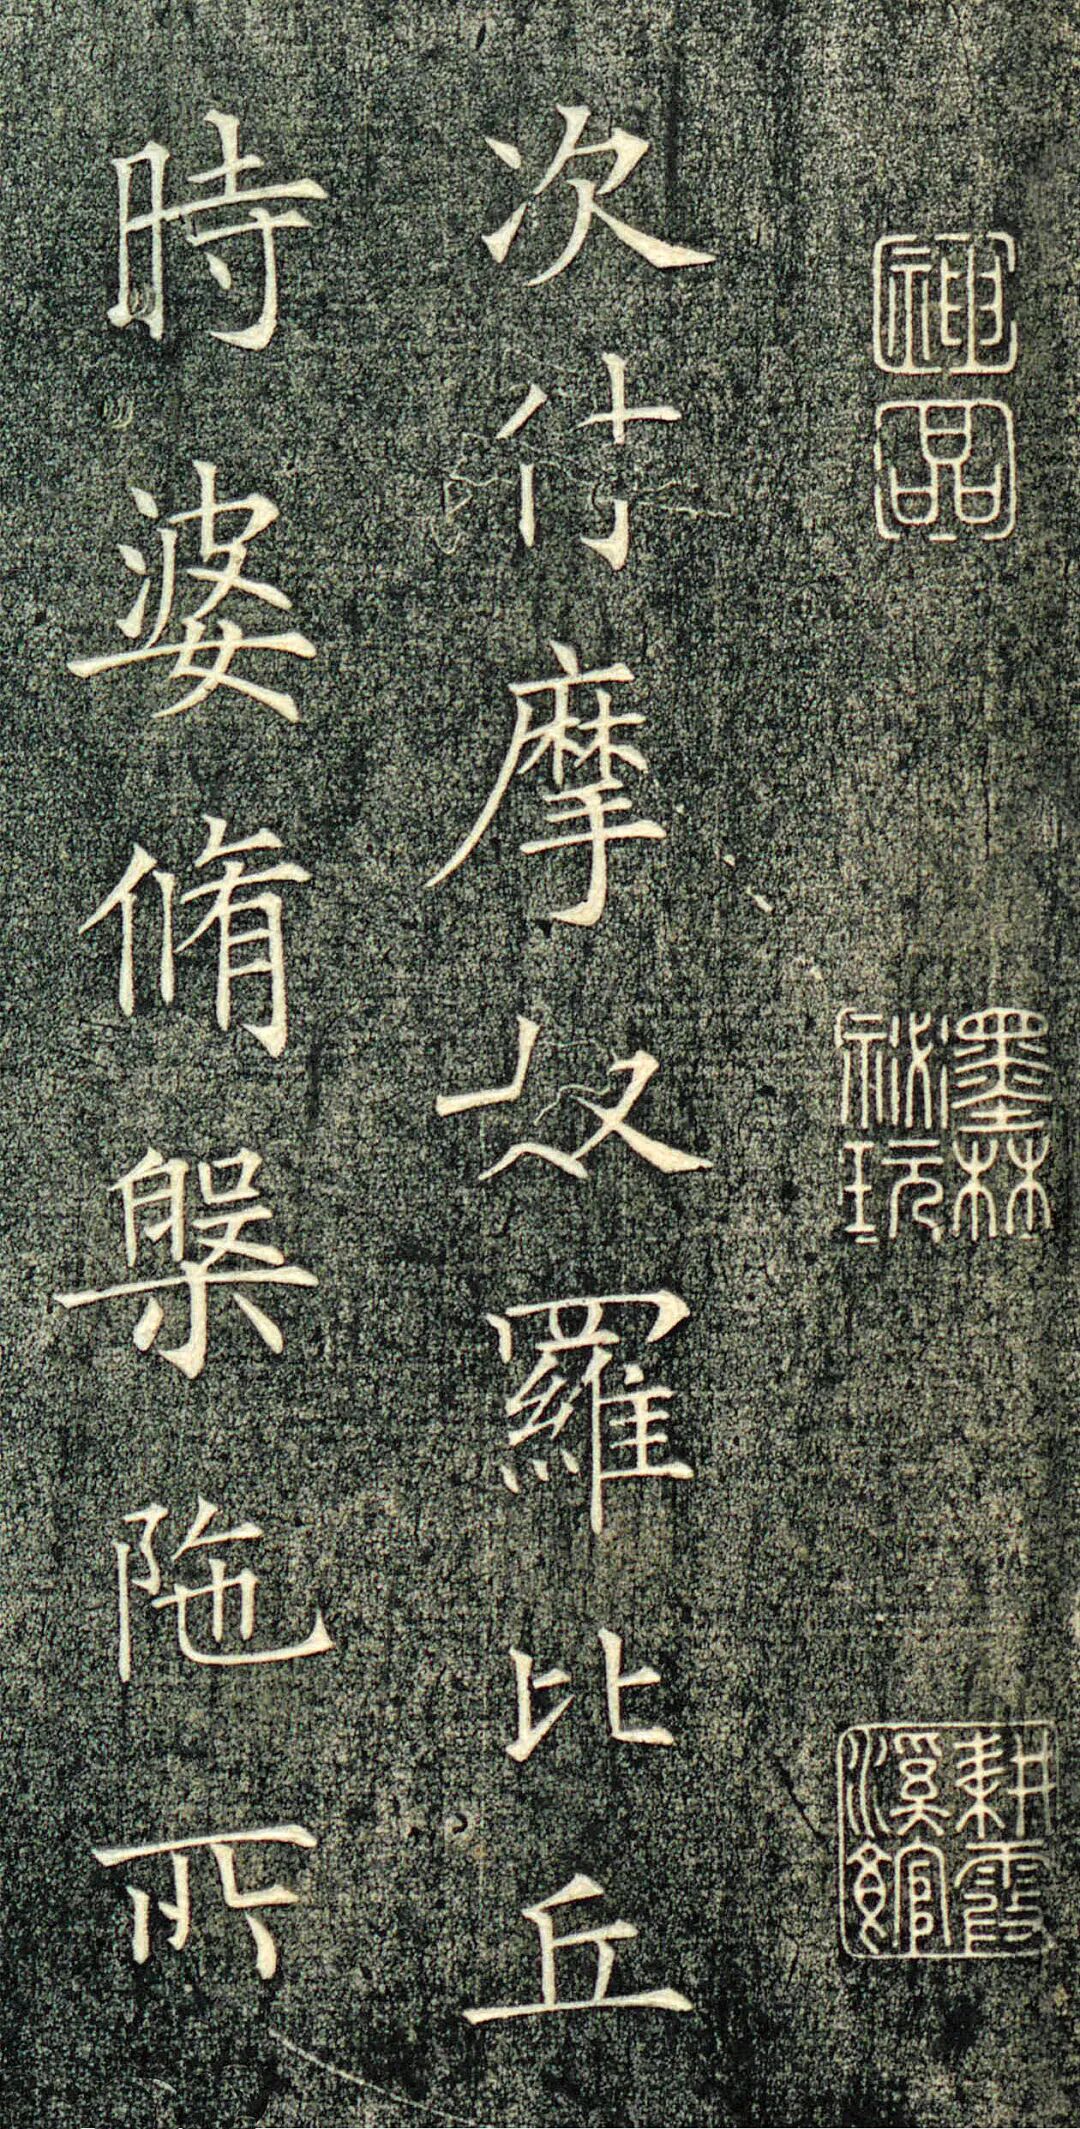 神品
墨林
祕玩
耕霞
溪館
次付摩奴羅比丘
時婆脩槃陁所